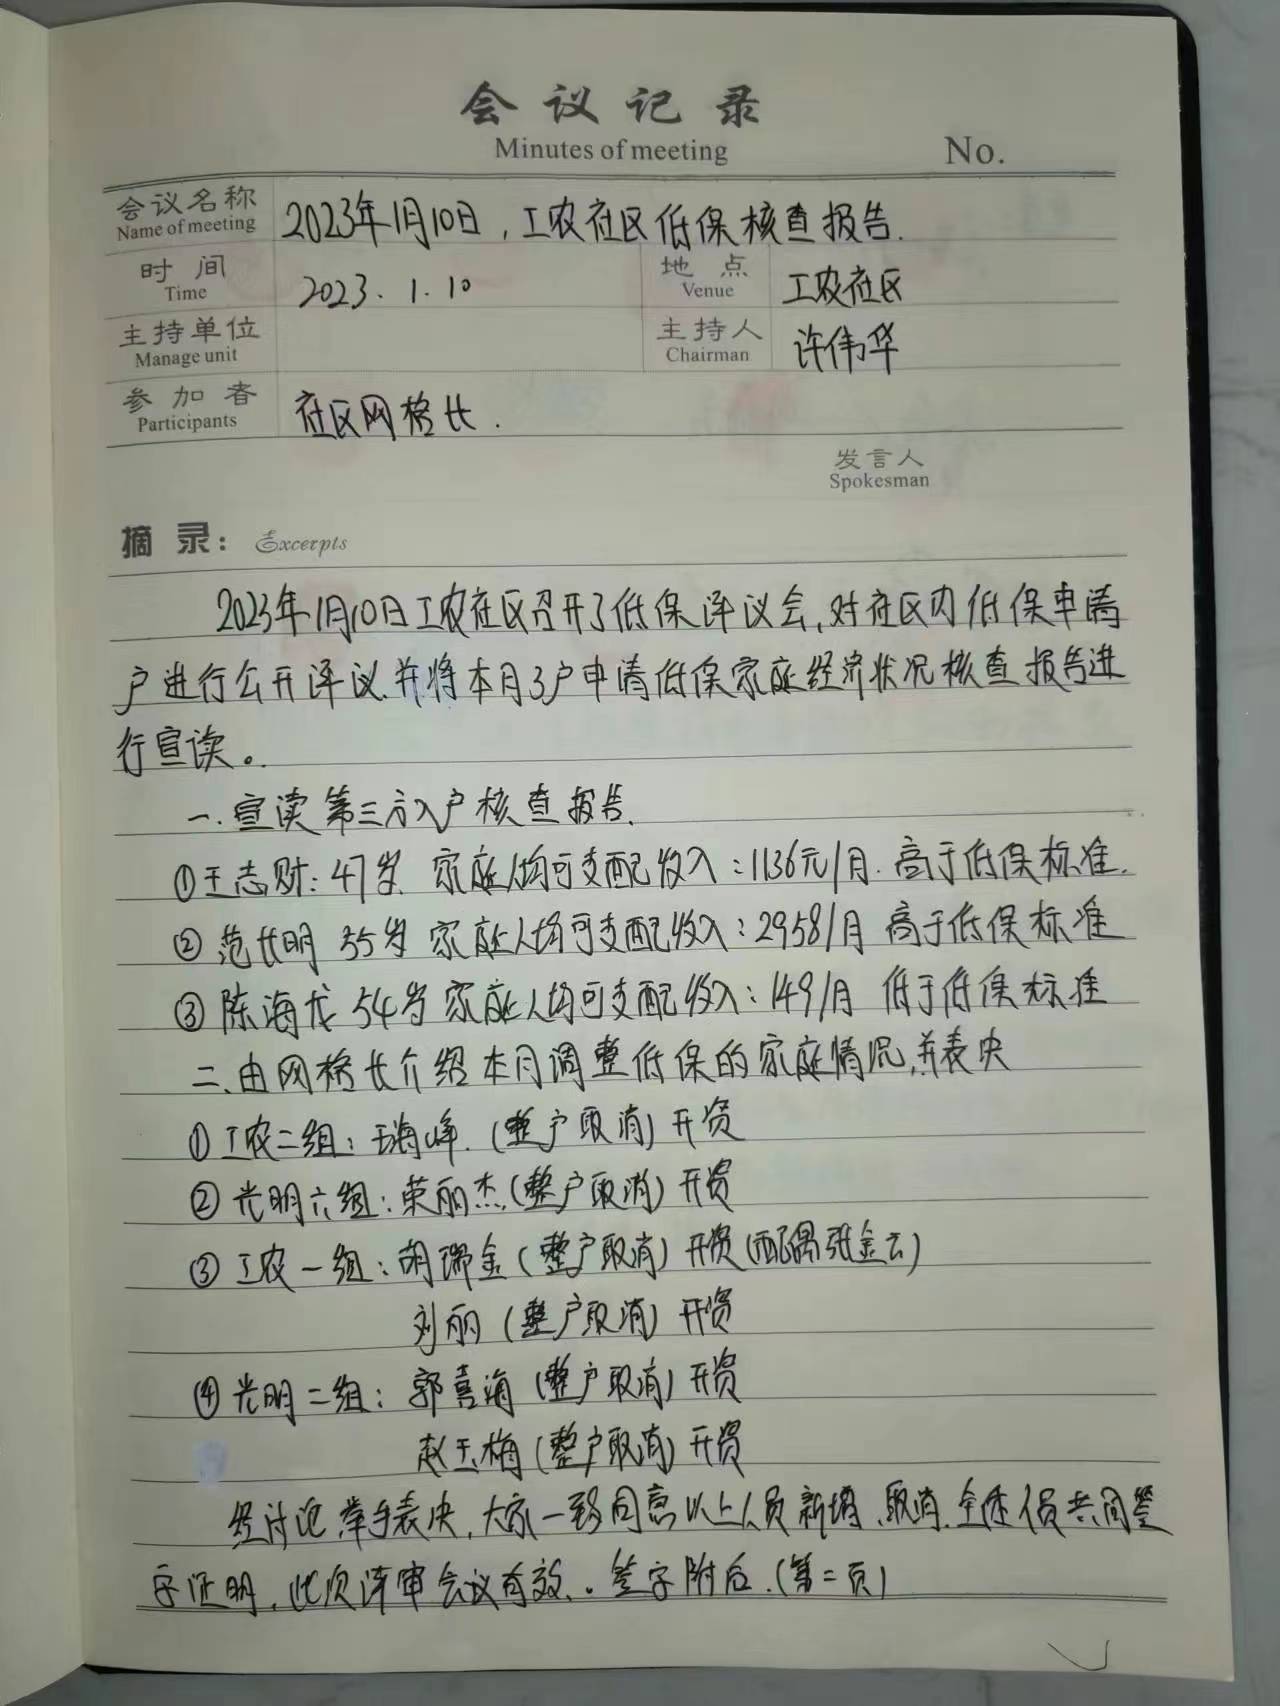 会议记录
Minutes of meeting
No.
会议名称 2023年1月10日,工农社区低保核查报告.
Name of meeting
时间 2023.1.10 地点 工农社区
Time Venue
主持单位 主持人 许伟华
Manage unit Chairman
参加者 社区网格长.
Participants
发言人
Spokesman
摘录: Excerpts
2023年1月10日工农社区召开了低保评议会,对社区内低保申请
户进行公开评议.并将本月3户申请低保家庭经济状况核查报告进
行宣读。
一.宣读第三方入户核查报告.
①王志财:47岁 家庭人均可支配收入:1136元/月.高于低保标准.
②范长明 35岁 家庭人均可支配收入:2958/月 高于低保标准
③陈海龙 54岁 家庭人均可支配收入:149/月 低于低保标准
二、由网格长介绍本月调整低保的家庭情况,并表决
①工农二组:王海峰.(整户取消)开资
②光明六组:荣丽杰(整户取消)开资
③工农一组:胡瑞金(整户取消)开资(配偶张金云)
刘丽(整户取消)开资
④光明二组:郭喜海(整户取消)开资
赵玉梅(整户取消)开资
经讨论举手表决,大家一致同意以上人员新增、取消.全体人员共同签
字证明,此次评审会议有效.。签字附后.(第二页)